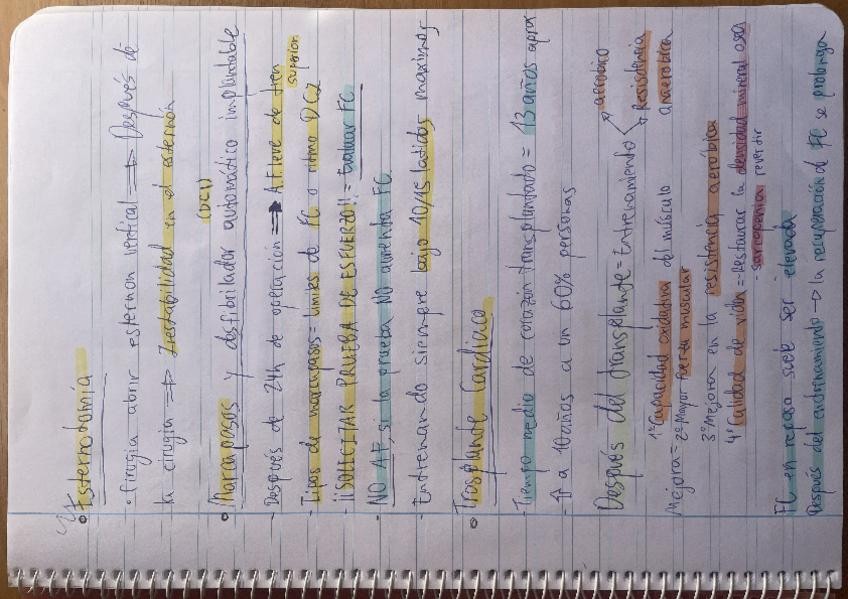 Esternotomía
• Cirugía abrir esternón vertical ⇒ Después de
la cirugía ⇒ Inestabilidad en el esternón
(DCI)
• Marcapasos y desfibrilador automático implantable
- Después de 24h de operación → AF leve de tren
superior
- Tipos de marcapasos = límites de FC o ritmo
- ¡¡SOLICITAR PRUEBA DE ESFUERZO!! = Evaluar FC
- NO AF, si la prueba NO aumenta FC
- Entrenando siempre bajo 10/15 latidos máximos
• Trasplante Cardíaco
- Tiempo medio de corazón transplantado = 13 años aprox
- ↑ a 10 años a un 60% personas
Después del transplante = Entrenamiento
→ aeróbico
→ Resistencia
anaeróbica
Mejora =
1º Capacidad oxidativa del músculo
2º Mayor fuerza muscular
3º Mejora en la resistencia aeróbica
4º Calidad de vida = - Restaurar la densidad mineral osea
- sarcopenia revertir
FC en reposo suele ser elevada
Después del entrenamiento → la recuperación de FC se prolonga